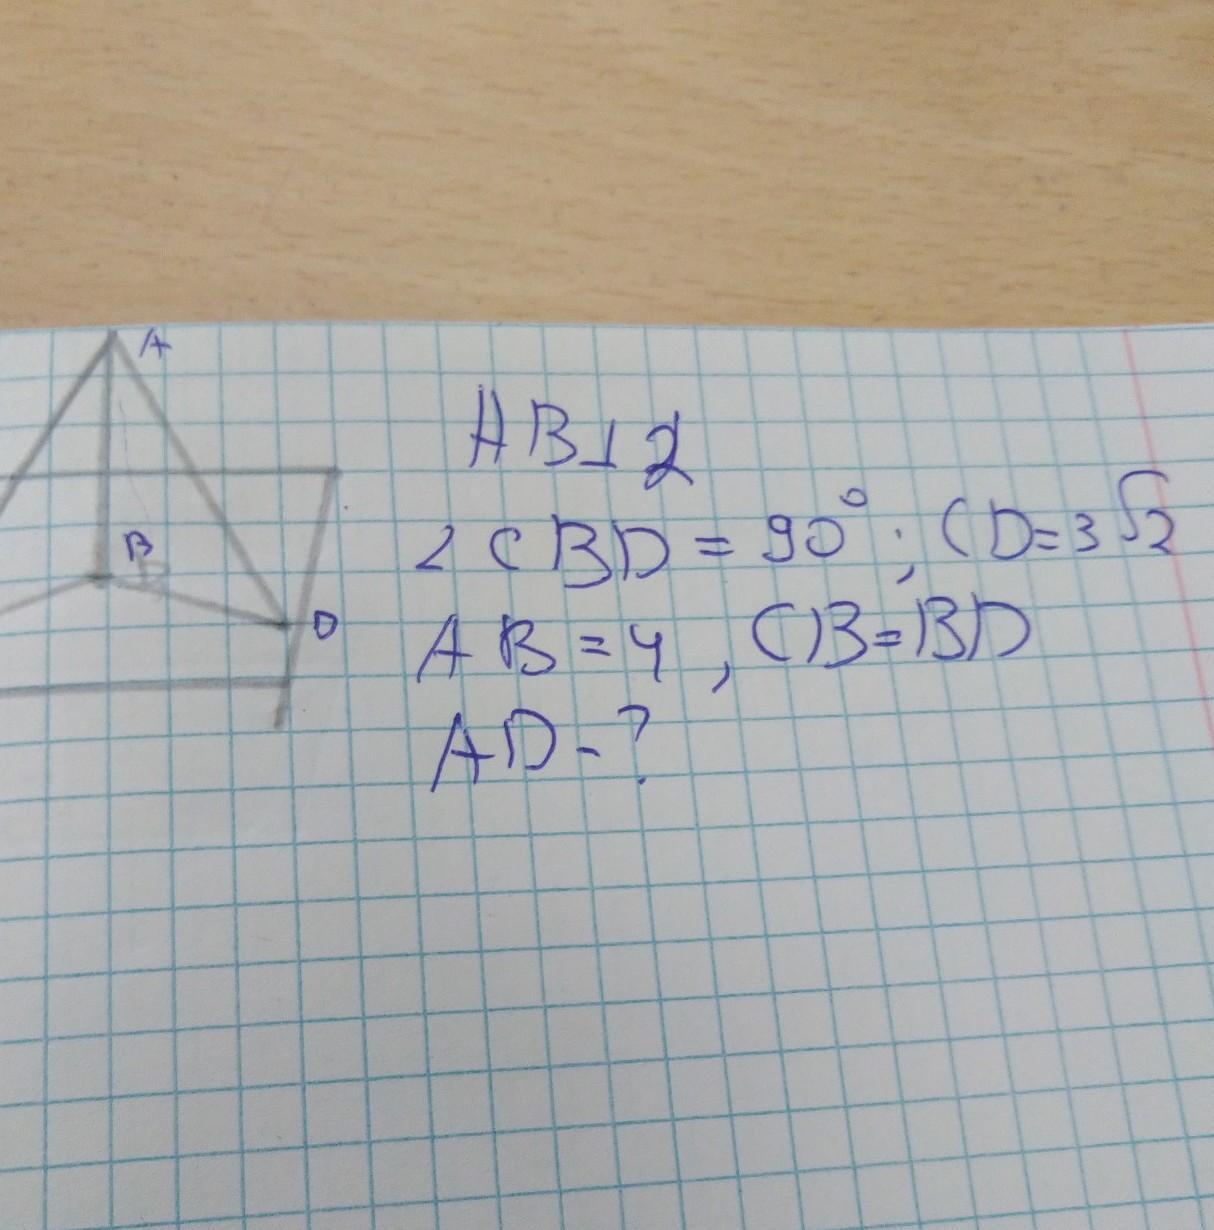 A
B
D
AB⊥α
∠CBD = 90°; CD=3√2
AB=4, CB=BD
AD-?